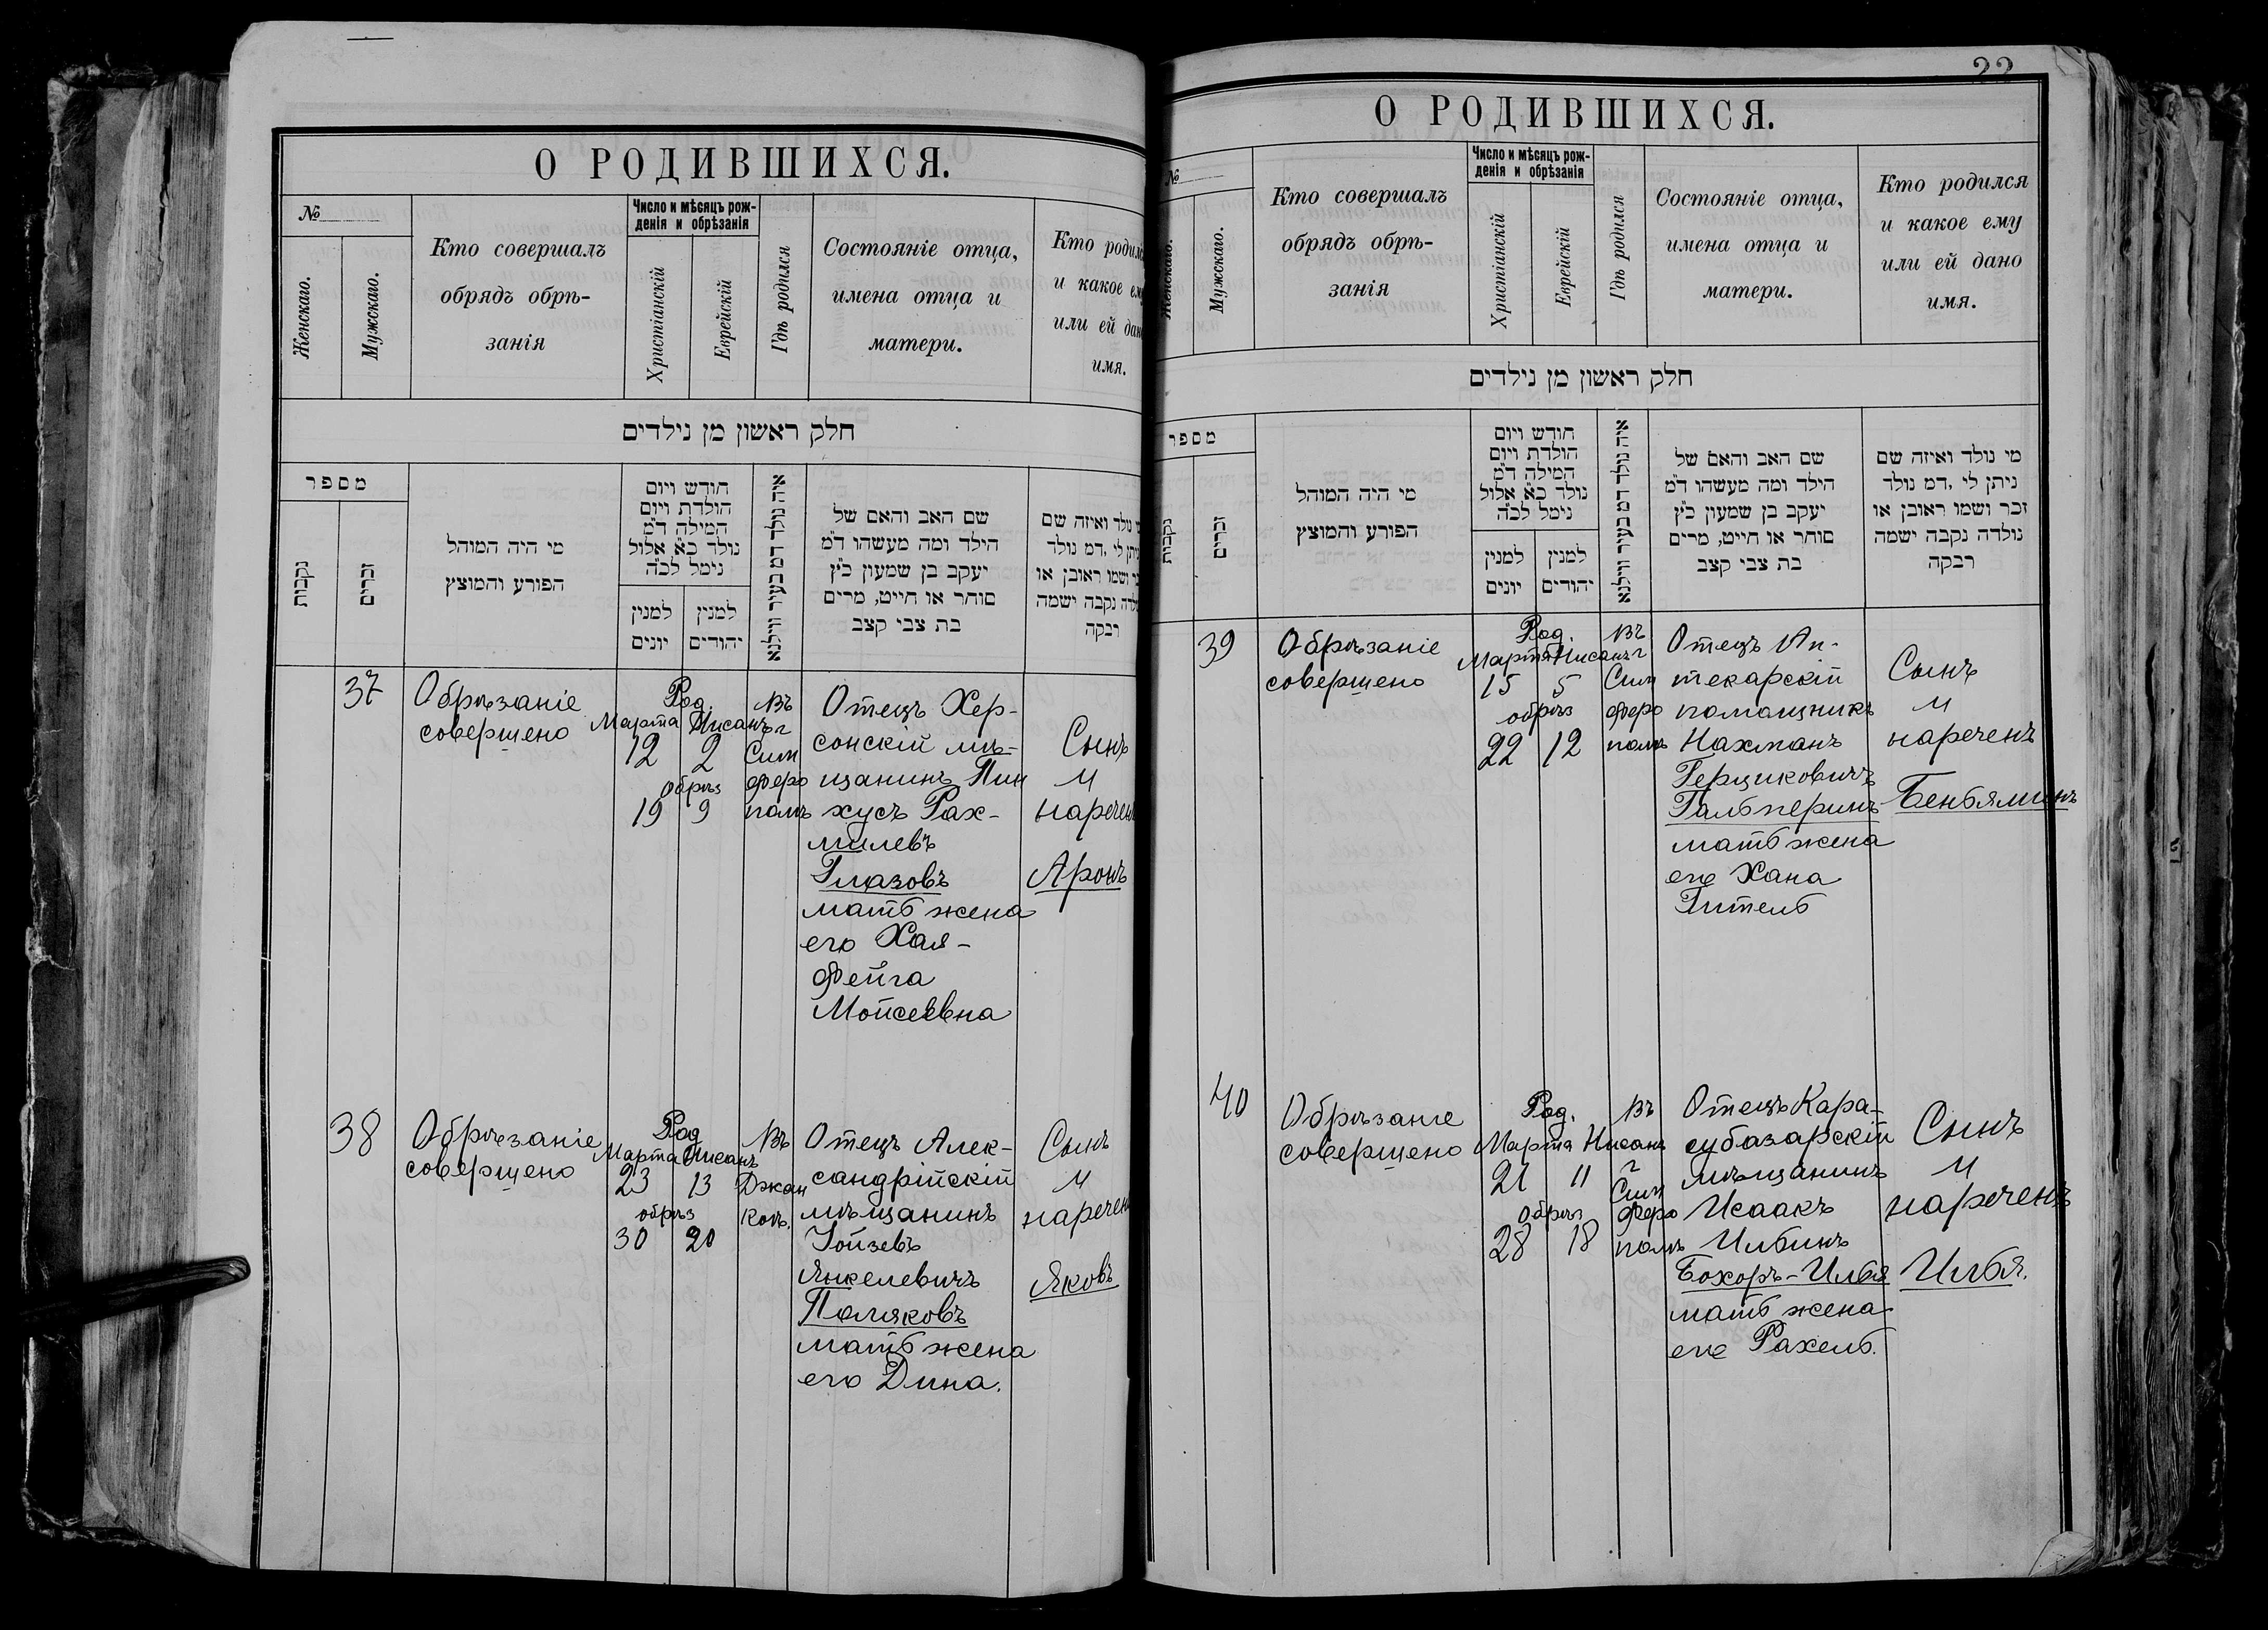 О РОДИВШИХСЯ.
№
Женскаго.
Мужскаго.
Кто совершалъ
обрядъ обрѣ-
занія
Число и мѣсяцъ рож-
денія и обрѣзанія
Христіанскій
Еврейскій
Гдѣ родился
Состояніе отца,
имена отца и
матери.
Кто родилс
и какое ему
или ей дано
имя.
חלק ראשון מן נילדים
מספר
נקבות
זכרים
מי היה המוהל
הפורע והמוצץ
חודש ויום
הולדת ויום
המילה ד״מ
נולד כ״א אלול
נימל לכ״ה
למנין
יונים
למנין
יהודים
איה נולד דמ בעיר ווילנא
שם האב והאם של
הילד ומה מעשהו ד״מ
יעקב בן שמעון כ״ץ
סוחר או חייט, מרים
בת צבי קצב
נולד ואיזה שם
יתן לי, דמ נולד
ושמו ראובן או
נקבה ישמה
רבקה
37
Обрѣзаніе
совершено
Род.
Марта Нисанъ
12 2
обрѣз
19 9
Въ
г
Сим
феро
полѣ
Отецъ Хер-
сонскій мѣ-
щанинъ Пин
хусъ Рах-
милевъ
Глазовъ
мать жена
его Хая-
Фейга
Мойсеевна
Сынъ
и
нареченъ
Аронъ
38
Обрѣзаніе
совершено
Род
Марта Нисанъ
23 13
обрѣз
30 20
Въ
Джан
коѣ.
Отецъ Алек-
сандрійскій
мѣщанинъ
Іойзевъ
Янкелевичъ
Поляковъ
мать жена
его Дина.
Сынъ
и
нареченъ
Яковъ
22
О РОДИВШИХСЯ.
№
Женскаго.
Мужскаго.
Кто совершалъ
обрядъ обрѣ-
занія
Число и мѣсяцъ рож-
денія и обрѣзанія
Христіанскій
Еврейскій
Гдѣ родился
Состояніе отца,
имена отца и
матери.
Кто родился
и какое ему
или ей дано
имя.
חלק ראשון מן נילדים
מספר
נקבות
זכרים
מי היה המוהל
הפורע והמוצץ
חודש ויום
הולדת ויום
המילה ד״מ
נולד כ״א אלול
נימל לכ״ה
למנין
יונים
למנין
יהודים
איה נולד דמ בעיר ווילנא
שם האב והאם של
הילד ומה מעשהו ד״מ
יעקב בן שמעון כ״ץ
סוחר או חייט, מרים
בת צבי קצב
מי נולד ואיזה שם
ניתן לי, דמ נולד
זכר ושמו ראובן או
נולדה נקבה ישמה
רבקה
39
Обрѣзаніе
совершено
Род.
Марта Нисанъ
15 5
обрѣз
22 12
Въ
г
Сим
феро
полѣ
Отецъ Ап-
текарскій
помощникъ
Нахманъ
Герциковичъ
Гальперинъ
мать жена
его Хана
Гитель
Сынъ
и
нареченъ
Беньяминъ
40
Обрѣзаніе
совершено
Род.
Марта Нисанъ
21 11
обрѣз
28 18
Въ
г
Сим
феро
полѣ
Отецъ Кара-
субазарскій
мѣщанинъ
Исаакъ
Ильинъ
Бохоръ-Илья
мать жена
его Рахель.
Сынъ
и
нареченъ
Илья.